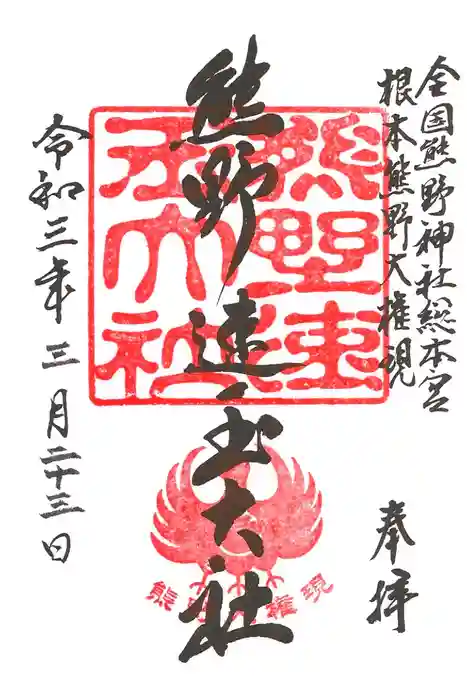 全国熊野神社総本宮
根本熊野大権現
奉拝
熊野速玉大社
令和三年三月二十三日
熊野速玉大社
熊野権現